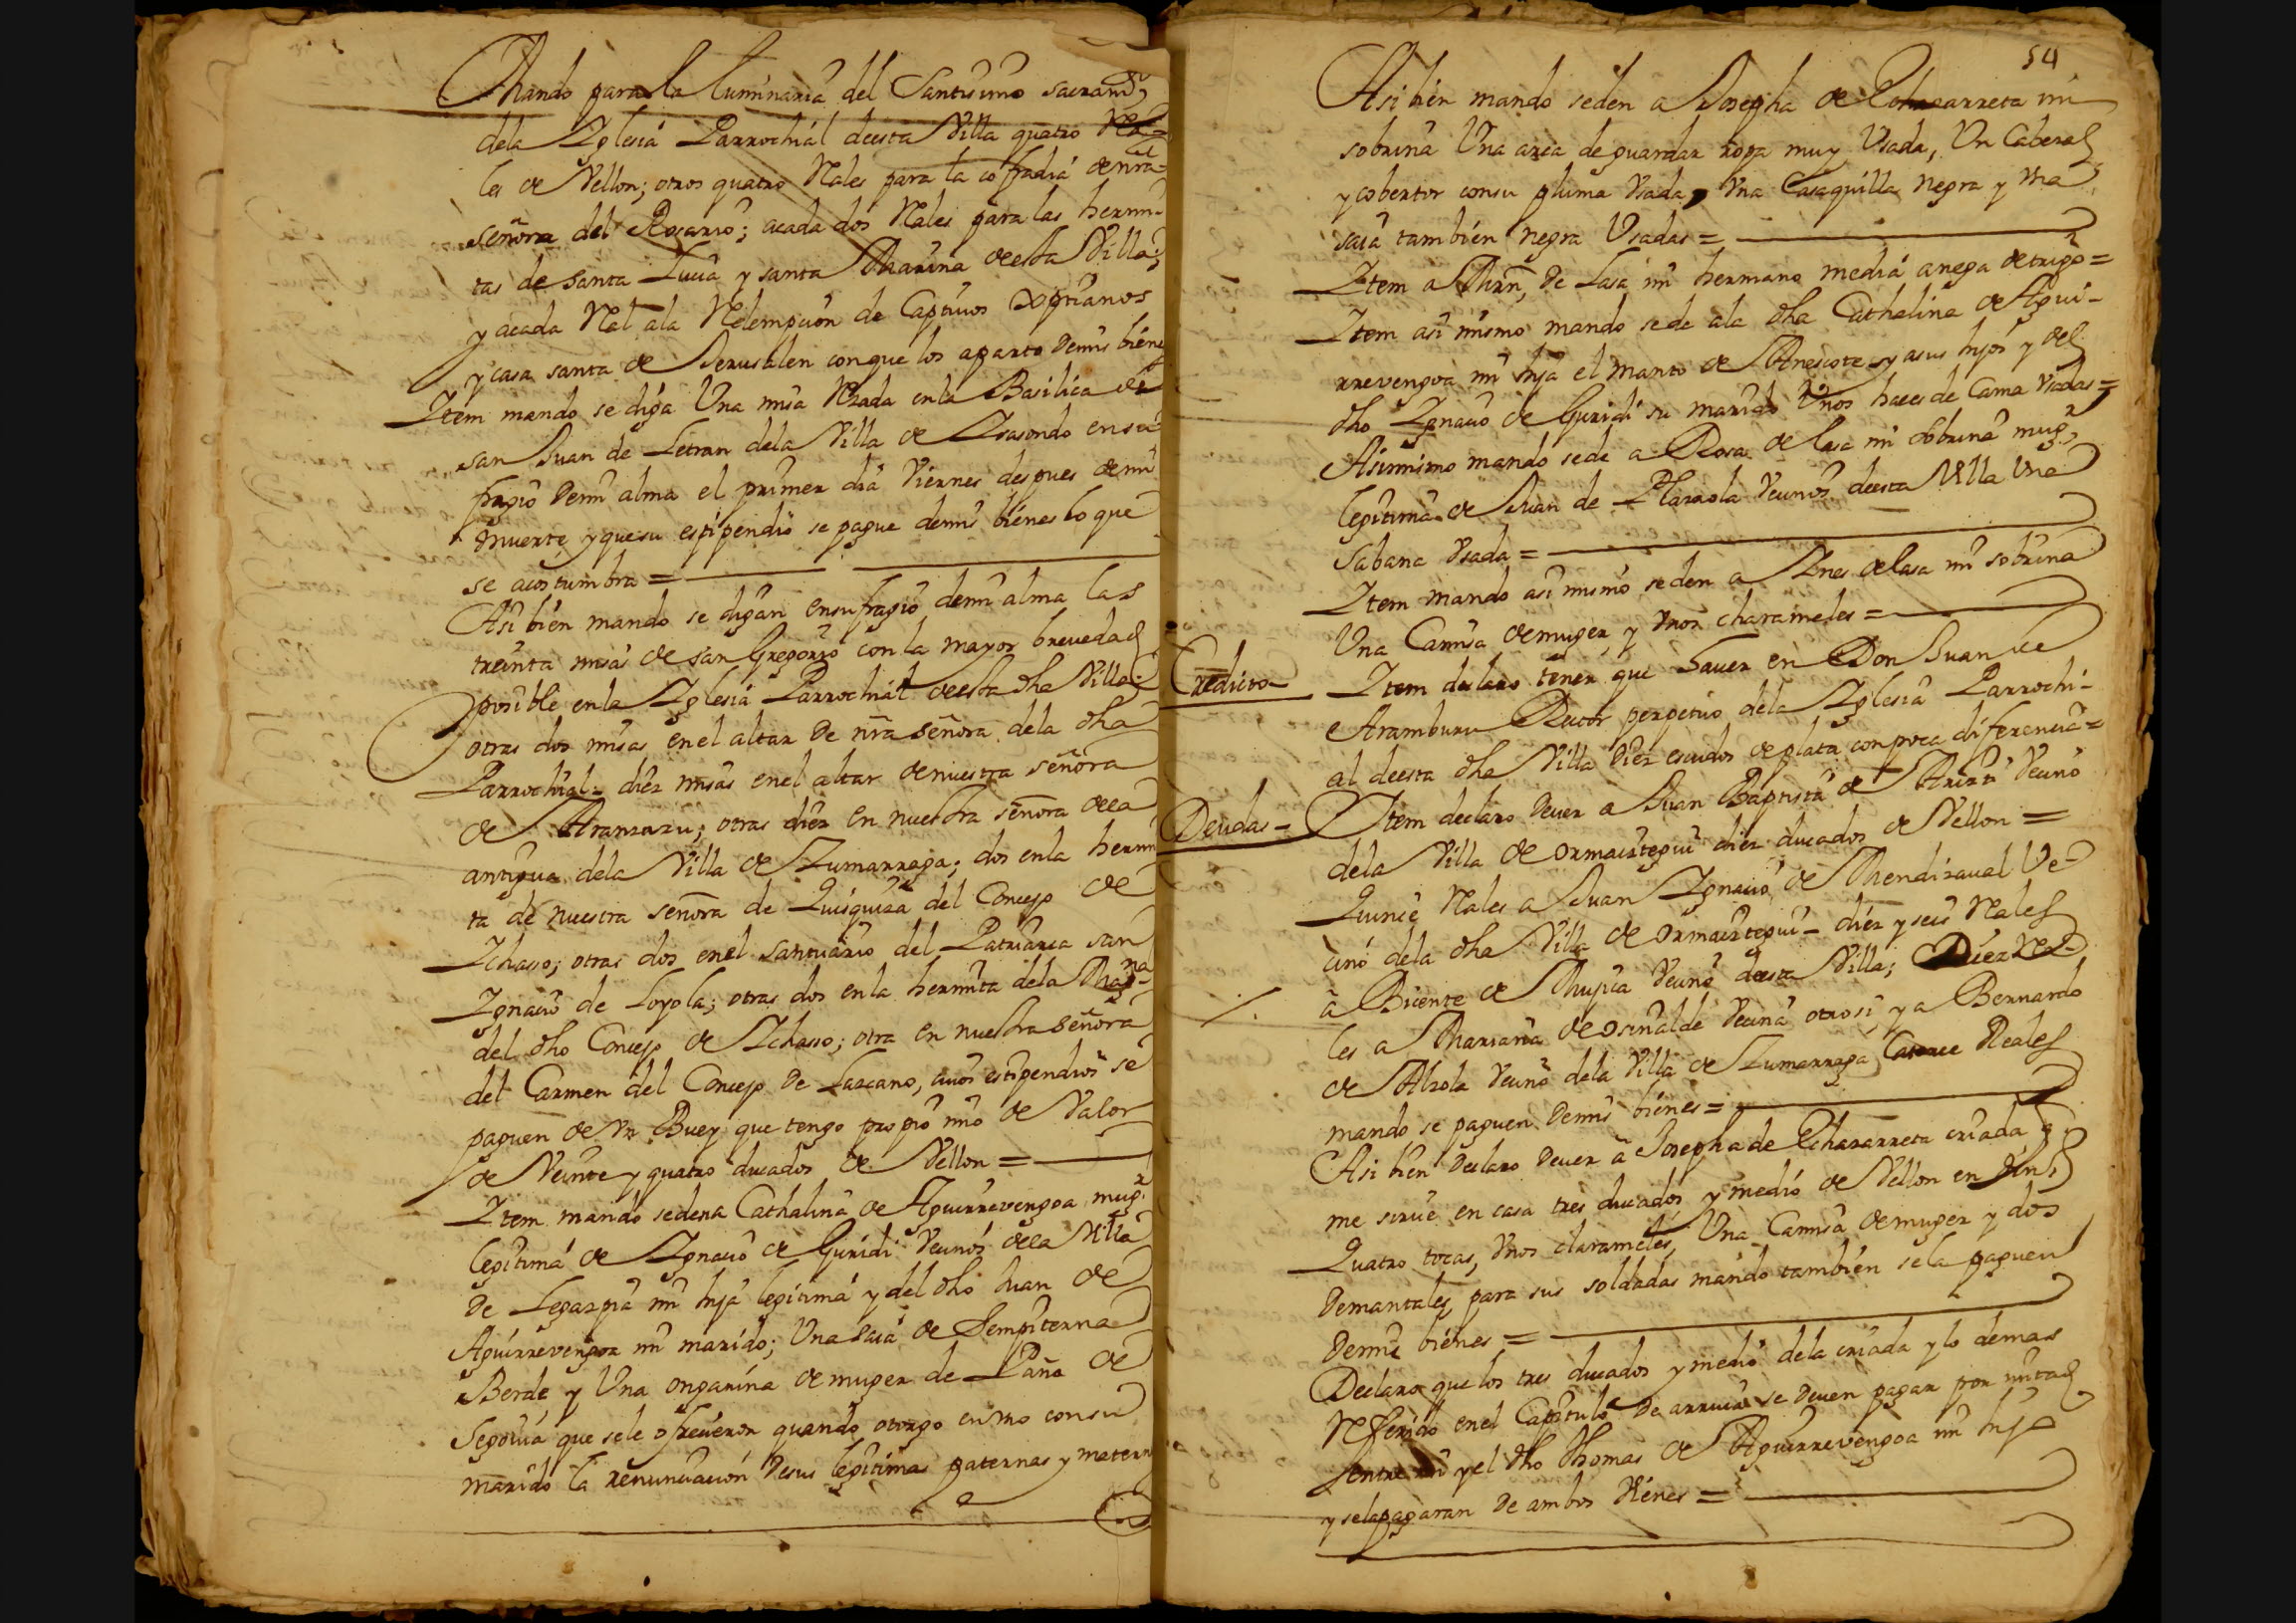 Mando para la luminaria del Santissimo sacramto,
dela Iglesia Parrochial deesta Villa quatro Rea-
les de Vellon; otros quatro Rales para la cofradia de nra
señora del Rosario; acada dos Rales para las hermi-
tas de santa Lucia y santa Marina deesta Villa;
y acada Ral ala Redempcion de Captiuos Xptianos
y casa santa de Jerusalen con que los aparto demis biene
Item mando se diga Una misa Rezada enla Basilica de
san Juan de Letran dela Villa de Isasondo en su-
fragio demi alma el primer dia Viernes despues de mi
muerte, y quesu estipendio se pague demis bienes lo que
se acostumbra =
Asi bien mando se digan ensufragio demi alma las
treinta misas de san Gregorio con la mayor breuedad
posible enla Iglesia Parrochial deesta dha Villa;
otras dos misas enel altar de nra señora dela dha
Parrochial- diez misas enel altar denuestra señora
de Aranzazu; otras diez en nuestra señora dela
antigua dela Villa de Zumarraga; dos enla hermi
ta de nuestra señora de Quisquiza del Concejo de
Ichasso; otras dos enel santuario del Patriarca san
Ignacio de Loyola; otras dos enla hermita dela Magna
del dho Concejo de Ichasso; otra en nuestra señora
del Carmen del Concejo de Lazcano, cuios estipendios se
paguen de Vn Buey que tengo propio mio de Valor
de Veinte y quatro ducados de Vellon =
Item mando sedena Cathalina de Aguirrevengoa mugr
legitima de Ignacio de Guridi Vecinos dela Villa
de Legazpia mi hija legitima y del dho Juan de
Aguirrevengoa mi marido; Una saia de Sempiterna
Berde, y Una ongarina demuger de Paño de
Segouia que sele ofrecieron quando otorgo en Vno consu
marido la renunciacion desus legitimas paternas y matern
54
Asi bien mando seden a Josepha de Echazarreta mi
sobrina Una arca de guardar ropa muy Vsada, Un Cabezal
y cobertor consu pluma Vsada, Vna Casaquilla negra y Vna
saia tambien negra Vsadas =
Item a Mrn, de Lasa mi hermano media anega detrigo =
Item asi mismo mando sede ala dha Cathalina de Agui-
rrevengoa mi hija el manto de Anescote, y asus hijos y del
dho Ignacio de Guridi su marido Vnos haces de Cama Vsadas =
Asimismo mando sede a Rosa de Lasa mi sobrina mugr,
legitima de Juan de Plazaola Vecinos deesta Villa Vna
Sabana Vsada =
Item mando asi mismo seden a Ines de lasa mi sobrina
Una Camisa demuger, y Vnos charameles =
Credicto-
Item declaro tener que hauer en Don Juan de
Aramburu Rector perpetuo dela Iglesia Parrochi-
al deesta dha Villa Diez escudos de plata con poca diferencia =
Deudas-
Item declaro Deuer a Juan Baptista de Arizti Vecino
dela Villa de Ormaiztegui diez ducados de Vellon =
Quince Rales a Juan Ignacio de Mendizaual Ve-
cino dela dha Villa de Ormaiztegui- diez y seis Rales
a Bicente de Mujica Vecino deesta Villa; Diez Rea
les a Mariana de Osinalde Vecina otrosi, y a Bernardo
de Alzola Vecino dela Villa de Zumarraga Catorce Reales
mando se paguen demis bienes =
Asi bien Declaro Deuer a Josepha de Echazarreta criada q.
me sirue en casa tres ducados y medio de Vellon en
Quatro tocas, Vnos charameles, Una Camisa demuger y dos
Demantales, para sus soldadas mando tambien sela paguen
Demis bienes =
Declaro que los tres ducados y medio dela criada y lo demas
Referido enel Capitulo de arriua se deuen pagar por mitad
entre mi y el dho Thomas de Aguirrevengoa mi hijo
y selapagaran de ambos Vienes =